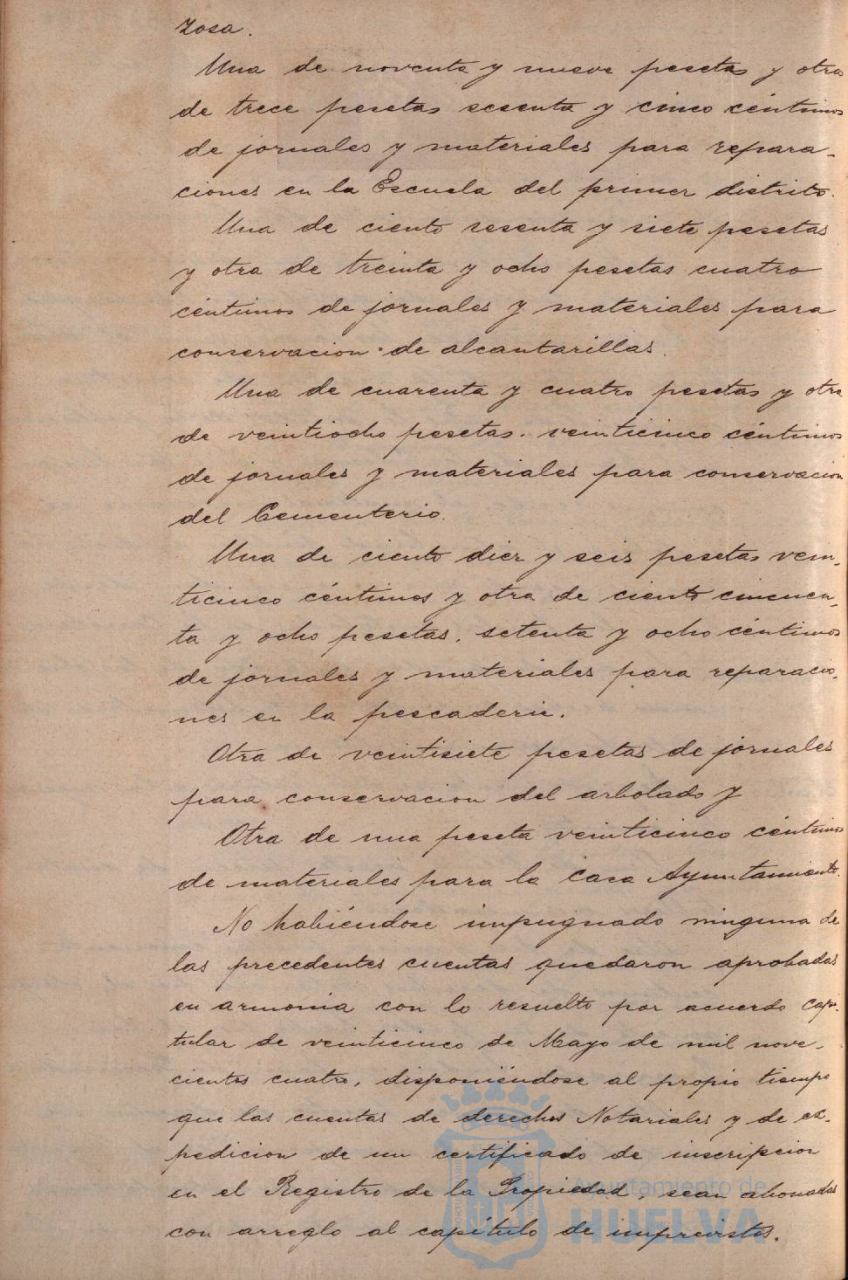 zosa.
Una de noventa y nueve pesetas y otra
de trece pesetas sesenta y cinco céntimos
de jornales y materiales para repara-
ciones en la Escuela del primer distrito.
Una de ciento sesenta y siete pesetas
y otra de treinta y ocho pesetas cuatro
céntimos de jornales y materiales para
conservacion de alcantarillas.
Una de cuarenta y cuatro pesetas y otra
de veintiocho pesetas. veinticinco céntimos
de jornales y materiales para conservacion
del Cementerio.
Una de ciento diez y seis pesetas vein-
ticinco céntimos y otra de ciento cincuen-
ta y ocho pesetas. setenta y ocho céntimos
de jornales y materiales para reparacio-
nes en la pescaderia.
Otra de veintisiete pesetas de jornales
para conservacion del arbolado y
Otra de una peseta veinticinco céntimos
de materiales para la casa Ayuntamiento.
No habiéndose impugnado ninguna de
las precedentes cuentas quedaron aprobadas
en armonia con lo resuelto por acuerdo capi-
tular de veinticinco de Mayo de mil nove-
cientos cuatro, disponiéndose al propio tiempo
que las cuentas de derechos Notariales y de ex-
pedicion de un certificado de inscripcion
en el Registro de la Propiedad, sean abonadas
con arreglo al capítulo de imprevistos.
Ayuntamiento de
HUELVA